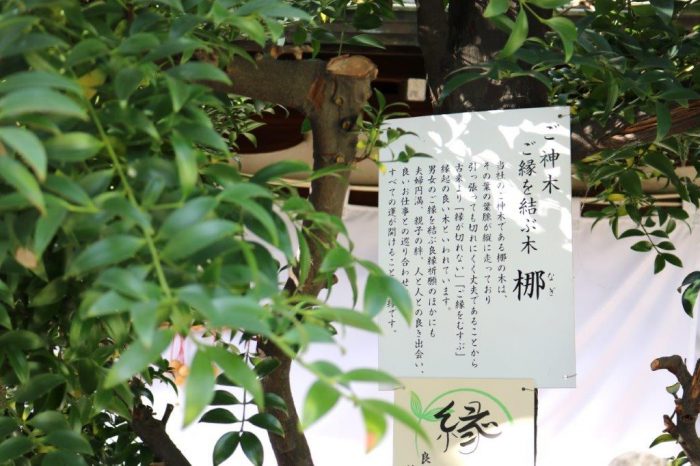 ご神木
ご縁を結ぶ木 梛
なぎ
当社のご神木である梛の木は、
その葉の葉脈が縦に走っており
引っ張っても切れにくく丈夫であることから
古来より「縁が切れない」「ご縁をむすぶ」
縁起の良い木といわれています。
男女のご縁を結ぶ良縁祈願のほかにも
夫婦円満、親子の絆、人と人との良き出会い、
良いお仕事との巡り合わせ
すべての運が開けること
です。
縁
良